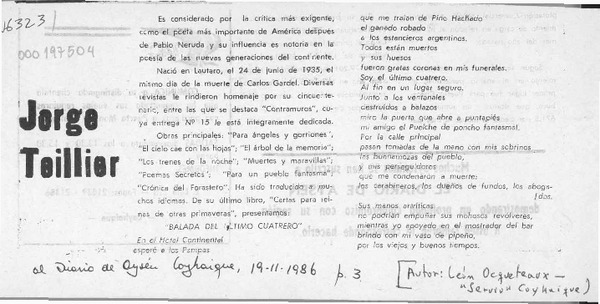 16323
000197504
Jorge
Teillier
Es considerado por la crítica más exigente,
como el poeta más importante de América después
de Pablo Neruda y su influencia es notoria en la
poesía de las nuevas generaciones del continente.
Nació en Lautaro, el 24 de junio de 1935, el
mismo día de la muerte de Carlos Gardel. Diversas
revistas le rindieron homenaje por su cincuente-
nario, entre las que se destaca "Contramuros", cu-
ya entrega Nº 15 le está íntegramente dedicada.
Obras principales: "Para ángeles y gorriones",
"El cielo cae con las hojas"; "El árbol de la memoria";
"Los trenes de la noche"; "Muertos y maravillas";
"Poemas Secretos"; "Para un pueblo fantasma";
"Crónica del Forastero". Ha sido traducido a mu-
chos idiomas. De su último libro, "Cartas para rei-
nas de otras primaveras", presentamos:
"BALADA DEL ULTIMO CUATRERO"
En el Hotel Continental
esperé a los Pampas
que me traían de Pino Hachado
el ganado robado
a los estancieros argentinos.
Todos están muertos
y sus huesos
fueron gratas coronas en mis funerales.
Soy el último cuatrero.
Al fin en un lugar seguro.
Junto a los ventanales
destruidos a balazos
miro la puerta que abre a puntapiés
mi amigo el Puelche de poncho fantasmal.
Por la calle principal
pasan tomados de la mano con mis sobrinos
los bienhemozas del pueblo,
y mis perseguidores
que me condenarán a muerte:
los carabineros, los dueños de fundos, los aboga-
[dos.
Sus manos artríticas
no podrían empuñar sus mohosos revólveres,
mientras yo apoyado en el mostrador del bar
brindo con mi vaso de pipeño,
por los viejos y buenos tiempos.
el Diario de Aysén Coyhaique, 19-11-1986 p. 3
[Autor: León Ocqueteaux -
"Servio" Coyhaique)